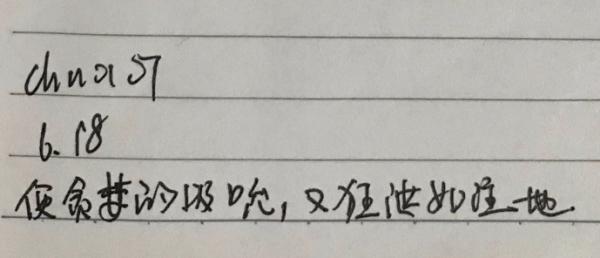 chnx57
6.18
便贪婪的吸吮，又狂泄如注地